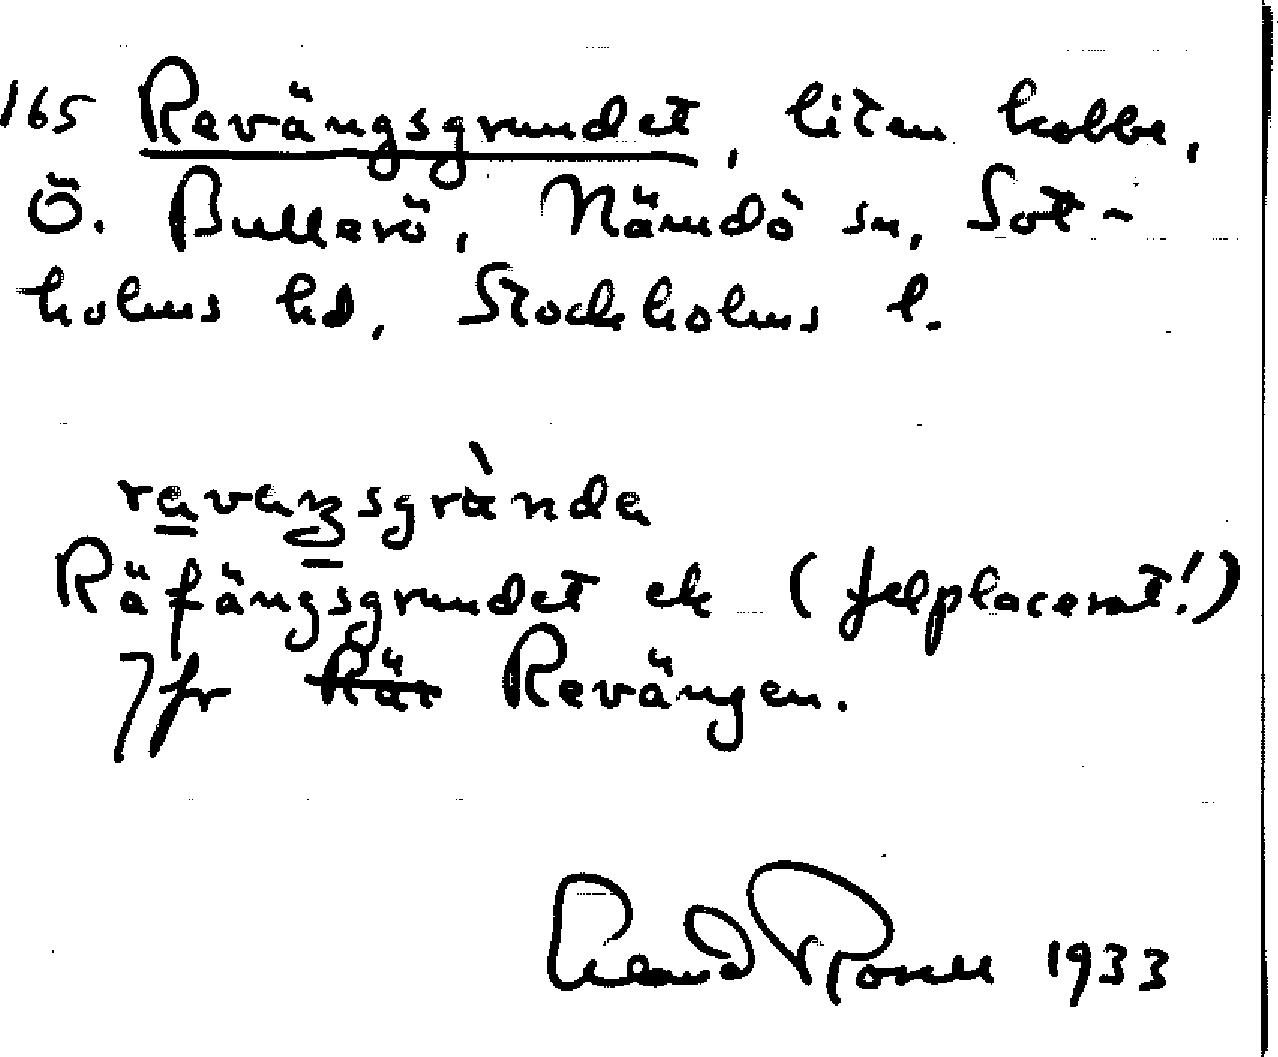 165 Revängsgrundet, liten kobbe,
Ö. Bullerö, Nämdö sn, Sot-
holms hd, Stockholms l.
Räfängsgrundet ek (felplacerat!)
Jfr Rär Revängen.
1933